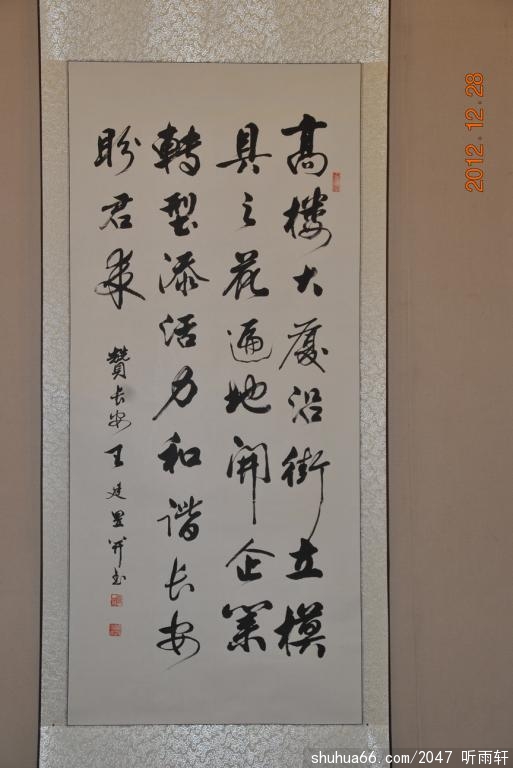 高樓大厦沿街立模
具之花遍地開企業
轉型添活力和谐长安
盼君来
贊长安王建墨并书
2012.12.28
shuhua66.com/2047 听雨轩